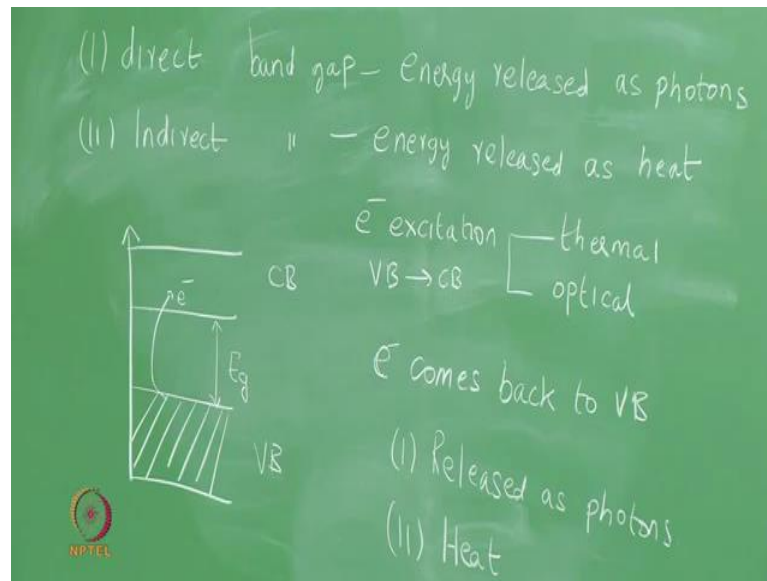 (I) direct band gap - energy released as photons
(II) Indirect " - energy released as heat
e⁻ excitation thermal
VB → CB optical
CB
e⁻
Eg
VB
e⁻ comes back to VB
(I) Released as photons
(II) Heat
NPTEL